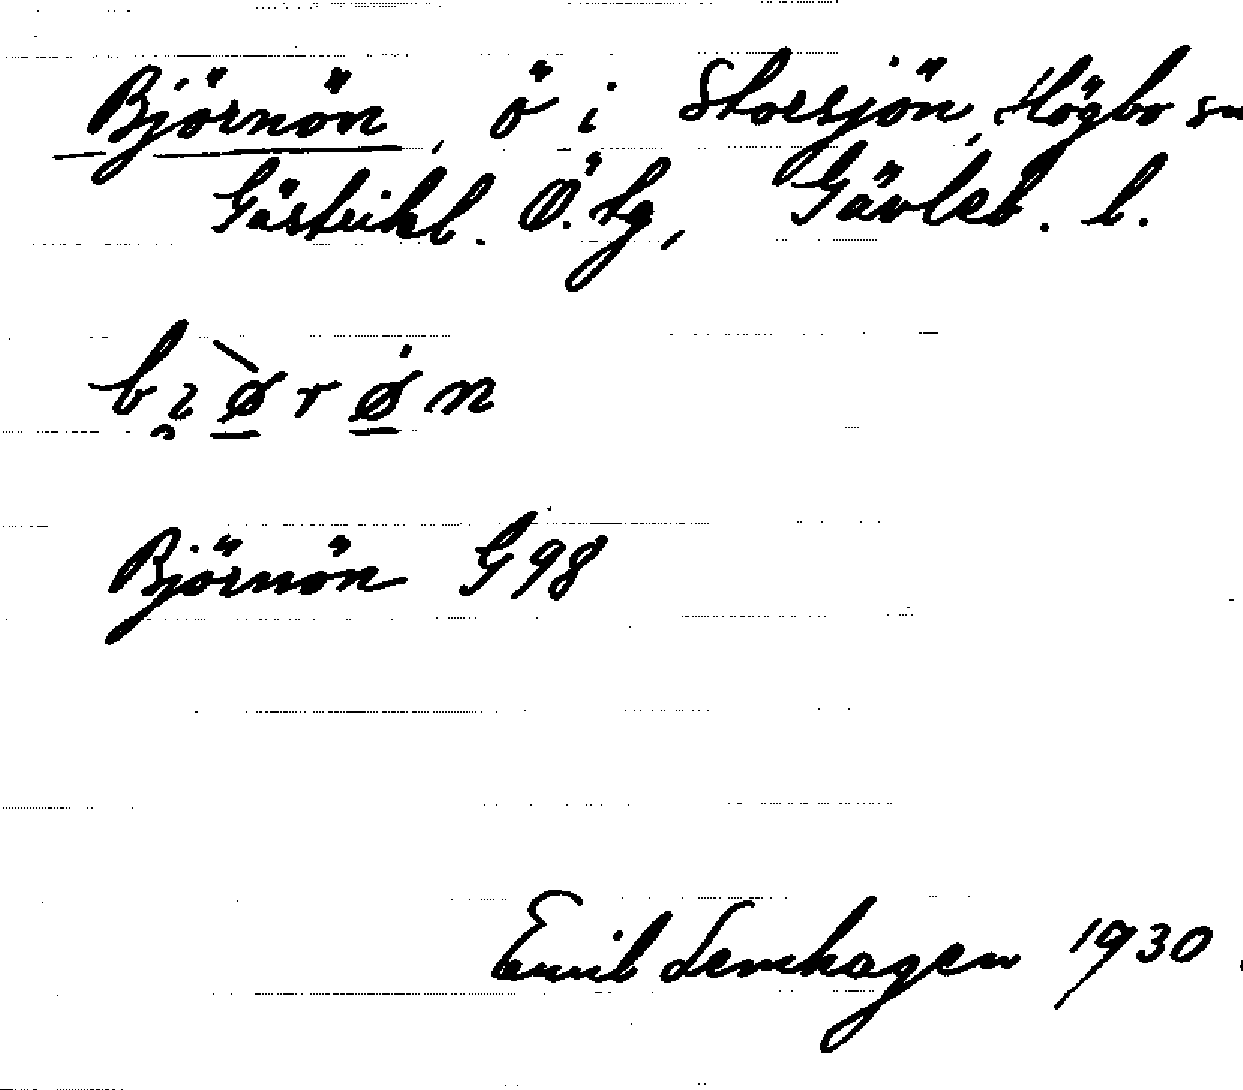 Björnön, ö i Storsjön, Högbo sn
Gästrikl. Ö. tg, Gävleb. l.
bi̯ø̀røn
Björnön G 98
Emil Lemhagen 1930